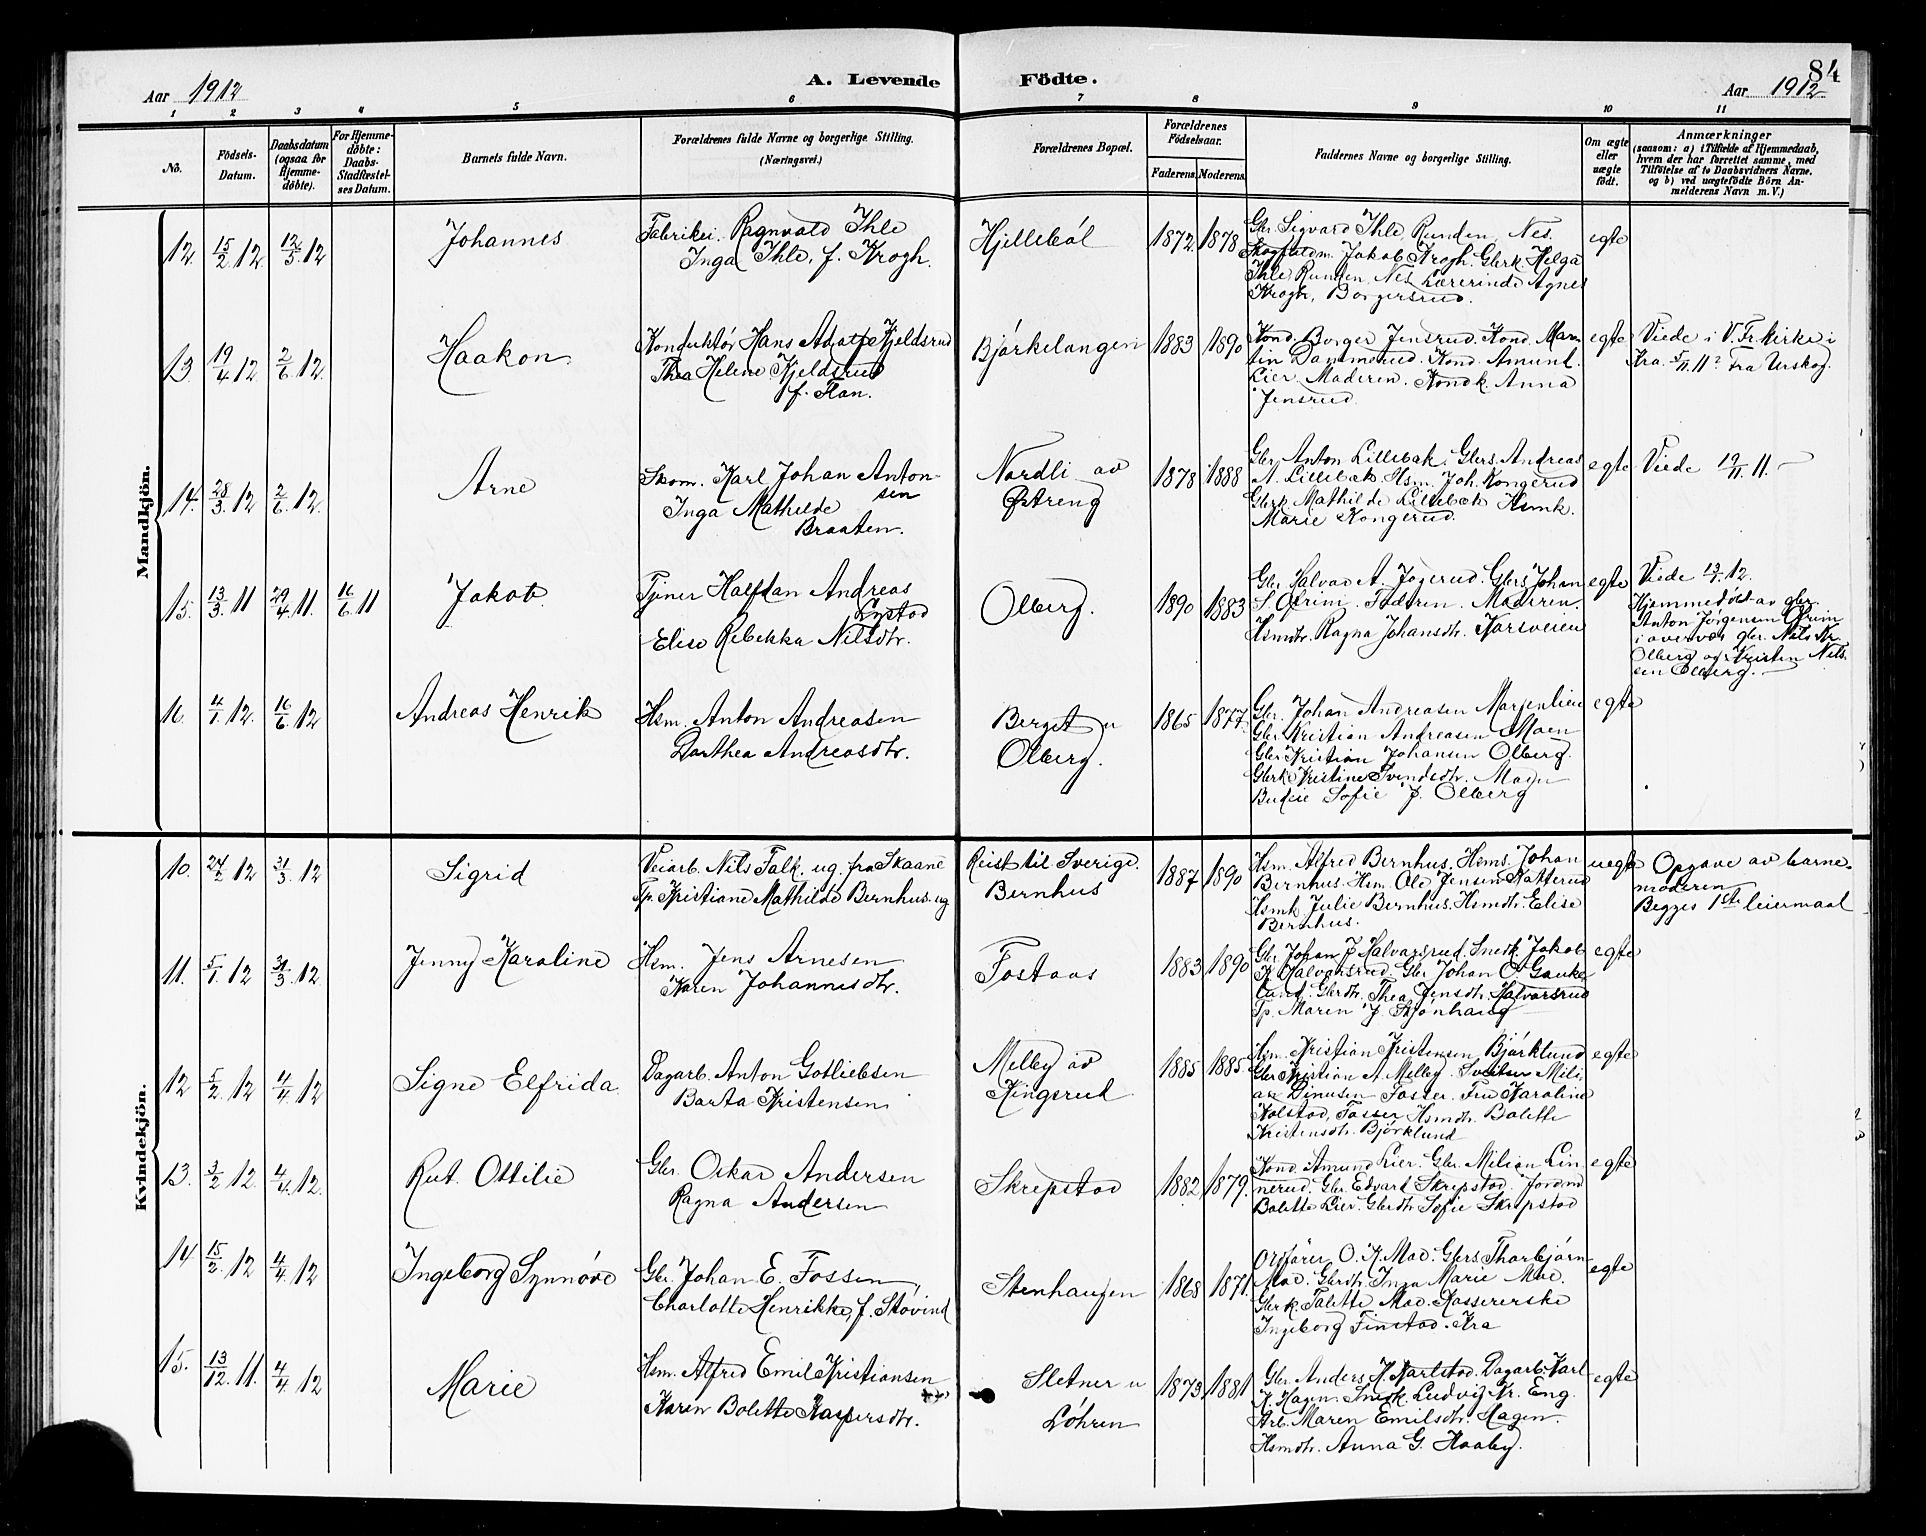 84
Aar 1912
A. Levende Födte.
Aar 1912
1 2 3 4 5 6 7 8 9 10 11
No.
Födsels-Datum.
Daabsdatum (ogsaa for Hjemme-döbte).
For Hjemme-döbte: Daabs-Stadfæstel-ses Datum.
Barnets fulde Navn.
Forældrenes fulde Navne og borgerlige Stilling.
(Næringsvei.)
Forældrenes Bopæl.
Forældrenes Födselsaar.
Faderens. Moderens.
Faddernes Navne og borgerlige Stilling.
Om ægte eller uægte födt.
Anmærkninger
(saasom: a) i Tilfælde af Hjemmedaab,
hvem der har forrettet samme, med
Tilföielse af to Daabsvidners Navne.
og b) ved uægtefödte Börn An-
melderens Navn m. V.)
Mandkjön.
12. 15/2 12. 12/5 12
Johannes
Fabrikei. Ragnvald Ihle
Inga Ihle, f. Krogh.
Hjellebøl
1872. 1878
Gbr. Sigvard Ihle Runden, Nes.
Skogfuldm. Jakob Krogh. Gbrk. Helga
Ihle Runden, Nes Lærerinde Agnes
Krogh, Borgersrud.
egte
13. 19/4 12 2/6 12.
Haakon.
Konduktør Hans Adolf Kjeldsrud
Thea Helene Kjeldsrud
f. Tran.
Bjørkelangen
1883 1890
Kond. Borger Jensrud. Kond. Mar
tin Dammerud. Kond. Amund
Lier. Moderen. Kondk. Anna
Jensrud.
egte
Viede i V. Fr. kirke i
Kra. 5/11 11? Fra Urskog.
14. 28/3 12 2/6 12.
Arne
Skom. Karl Johan Anton-
sen
Inga Mathilde
Braaten.
Nordli av
Østreng
1878 1888
Gbr. Anton Lillebæk. Gbrs. Andreas
A. Lillebæk. Hsm. Joh. Kongerud
Gbrk. Mathilde Lillebæk Hsmk.
Marie Kongerud.
egte
Viede 19/11 11. –
15. 13/3 11 29/4 11. 16/6 11
Jakob.
Tjener Halfdan Andreas
Lystad
Elise Rebekka Nilsdtr.
Olberg.
1890 1883
Gbr. Halvor A. Jogerud. Gbrs. Johan
Faderen. Moderen.
Hsmdtr. Ragna Johansdtr. Korsveien
egte
Viede 12.
Hjemmedøbt av gbr.
Anton Jørgensen
i overvær gbr. Nils Kr.
Olberg og Kristen Nils
sen Olberg. –
16. 4/1 12. 16/6 12
Andreas Henrik
Hsm. Anton Andreasen
Dorthea Andreasdtr.
Berget u
Olberg.
1865 1877.
Gbr. Johan Andreasen Marjenlien
Gbr. Kristian Andreasen Moen
Gbr. Kristian Johansen Olberg.
Gbrk. Kristine Svendsdtr. Moen
Budeie Sofie J. Olberg
egte
Kvindekjön.
10. 24/2 12 31/3 12
Sigrid
Veiarb. Nils Falk. ug. fra Skaane
Tp. Kristiane Mathilde Bernhus. ug
Reist til Sverige.
Bernhus
1887 1890
Hsm. Alfred Bernhus. Hsms. Johan
Bernhus. Hsm. Ole Jensen Katterud
Hsmk Julie Bernhus. Hsmdtr. Elise
Bernhus.
uegte
Opgave av barne-
moderen
Begges 1ste leiermaal
11. 5/1 12 31/3 12
Jenny Karoline
Hsm. Jens Arnesen
Karen Johannesdtr.
Fostaas
1883 1890
Gbr. Johan J. Halvorsrud. Snedk. Jakob
K. Halvorsrud. Gbr. Johan O. Gauke
land. Gbrdtr. Thea Jensdtr. Halvorsrud
Tp. Maren J. Skjønhaug
egte
12 5/2 12 4/4 12
Signe Elfrida
Dagarb. Anton Gotliebsen
Barta Kristensen
Melby av
Kingsrud
1885 1885.
Hsm. Kristian Kristensen Bjørklund
Gbr. Kristian A. Melby. Sveitser Mili
an Dinusen Fosser. Fru Karoline
Kolstad, Fosser. Hsmdtr. Bolette
Kristensdtr. Bjørklund
egte
13. 3/2 12. 4/4 12.
Rut. Ottilie
Gbr. Oskar Andersen
Ragna Andersen
Skrepstad
1882. 1879.
Kond. Amund Lier. Gbr. Milian Lin
nerud. Gbr. Edvart Skrepstad. Jordmd
Bolette Lier. Gbrdtr. Sofie Skrepstad
egte
14 15/2 12 4/4 12
Ingeborg Synnøve
Gbr. Johan E. Fossen,
Charlotte Henrikke, f. Støvind
Stenhaugen
1868 1871.
Ordfører O. K. Moe. Gbrs. Thorbjørn
Moe. Gbrdtr. Inga Marie Moe.
Gbrk. Talette Moe. Kassererske
Ingeborg Finstad. Kra
egte
15. 13/12 11. 4/4 12
Marie
Hsm. Alfred Emil Kristiansen
Karen Bolette Kaspersdtr.
Sletner u
Løhren
1873 1881
Gbr. Anders H. Karlstad. Dagarb. Karl
K. Hagen. Snedk. Ludvig Kr. Eng.
Arb. Maren Emilsdtr. Hagen.
Hsmdtr. Anna G. Haaby.
egte